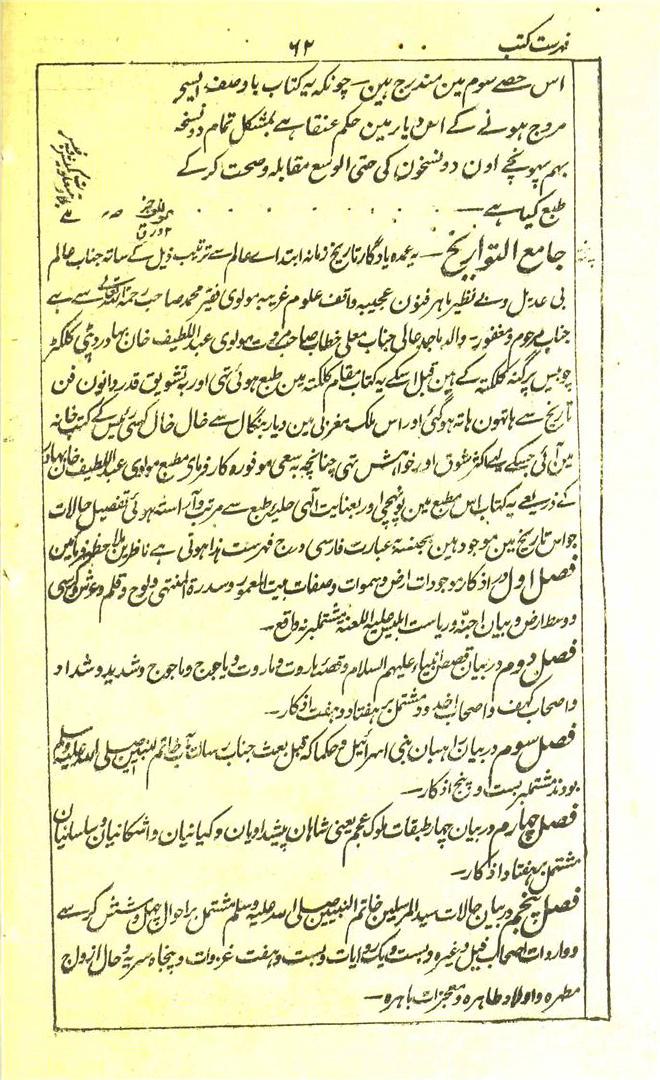 فہرست کتب
۶۲
اس حصے سوم مین مندرج ہین۔ چونکہ یہ کتاب باوصف
مروج ہونے کے اس دیار مین حکم عنقا ہے بمشکل تمام دو نسخہ
بہم پہونچے اون دو نسخون کی حتی الوسع مقابلہ و صحت کرکے
طبع کیا ہے۔
جامع التواریخ۔ یہ عمدہ یادگار تاریخ زمانہ ابتداے عالم سے ترتیب ذیل کے ساتھ جناب عالم
بی عدیل و بے نظیر ماہر فنون عجیبہ واقف علوم غریبہ مولوی فقیر محمد صاحب رحمۃ اللہ سے ہے
جناب مرحوم و مغفور والد ماجد عالی جناب معلی خطاب صاحب مولوی عبد اللطیف خان بہادر ڈپٹی کلکٹر
چوبیس پرگنہ کلکتہ کے ہین قبل اسکے یہ کتاب مقام کلکتہ مین طبع ہوئی تھی اور بہ تشویق قدردانون فن
تاریخ سے ہاتھون ہاتھ ہو گئی اور اس ملک مغربی مین دیار بنگال سے خال خال کسی رئیس کے کتب خانہ
مین آئی جسکے اکثر شوق اور خواہش تھی چنانچہ بہ سعی موفورہ کارفرمای مطبع مولوی عبد اللطیف خان بہادر
کے ذریعے یہ کتاب اس مطبع مین پونہچی اور بعنایت الٰہی حلیہ طبع سے مرتب و آراستہ ہوئی تفصیل حالات
جو اس تاریخ مین موجود ہین بجنسہ بہ عبارت فارسی درج فہرست ہذا ہوتی ہے ناظرین ملاحظہ فرمائین
فصل اول در اذکار موجودات ارض و سموات و صفات بیت المعمور و سدرۃ المنتہی و لوح و قلم و عرش و کرسی
و وسط ارض و بیان اجنّہ و ریاست ابلیس علیہ اللعنۃ مشتملبر نہ واقع۔
فصل دوم در بیان قصص انبیاء علیہم السلام و قصّہ ہاروت و ماروت و یاجوج و ماجوج و شدید و شداد
و اصحاب کہف و اصحاب اخدود مشتمل بر ہفتاد و ہفت اذکار۔
فصل سوم در بیان راہبان بنی اسرائیل و حکما کہ قبل بعثت جناب رسالت مآب خاتم النبیین صلی اللہ علیہ وسلم
بودند مشتملبر بست و پنج اذکار۔
فصل چہارم در بیان چہار طبقات ملوک عجم یعنی شاہان پیشدادیان و کیانیان و اشکانیان و ساسانیان
مشتمل بر ہفتاد اذکار۔
فصل پنجم در بیان حالات سید المرسلین خاتم النبیین صلی اللہ علیہ وسلم مشتمل بر احوال چہل و شش کرسے
و واردات اصحاب فیل و غیرہ و بست و یک روایات و بست و ہفت غزوات و پنجاہ سریہ و حال ازواج
مطہرہ و اولاد طاہرہ و معجزات باہرہ۔